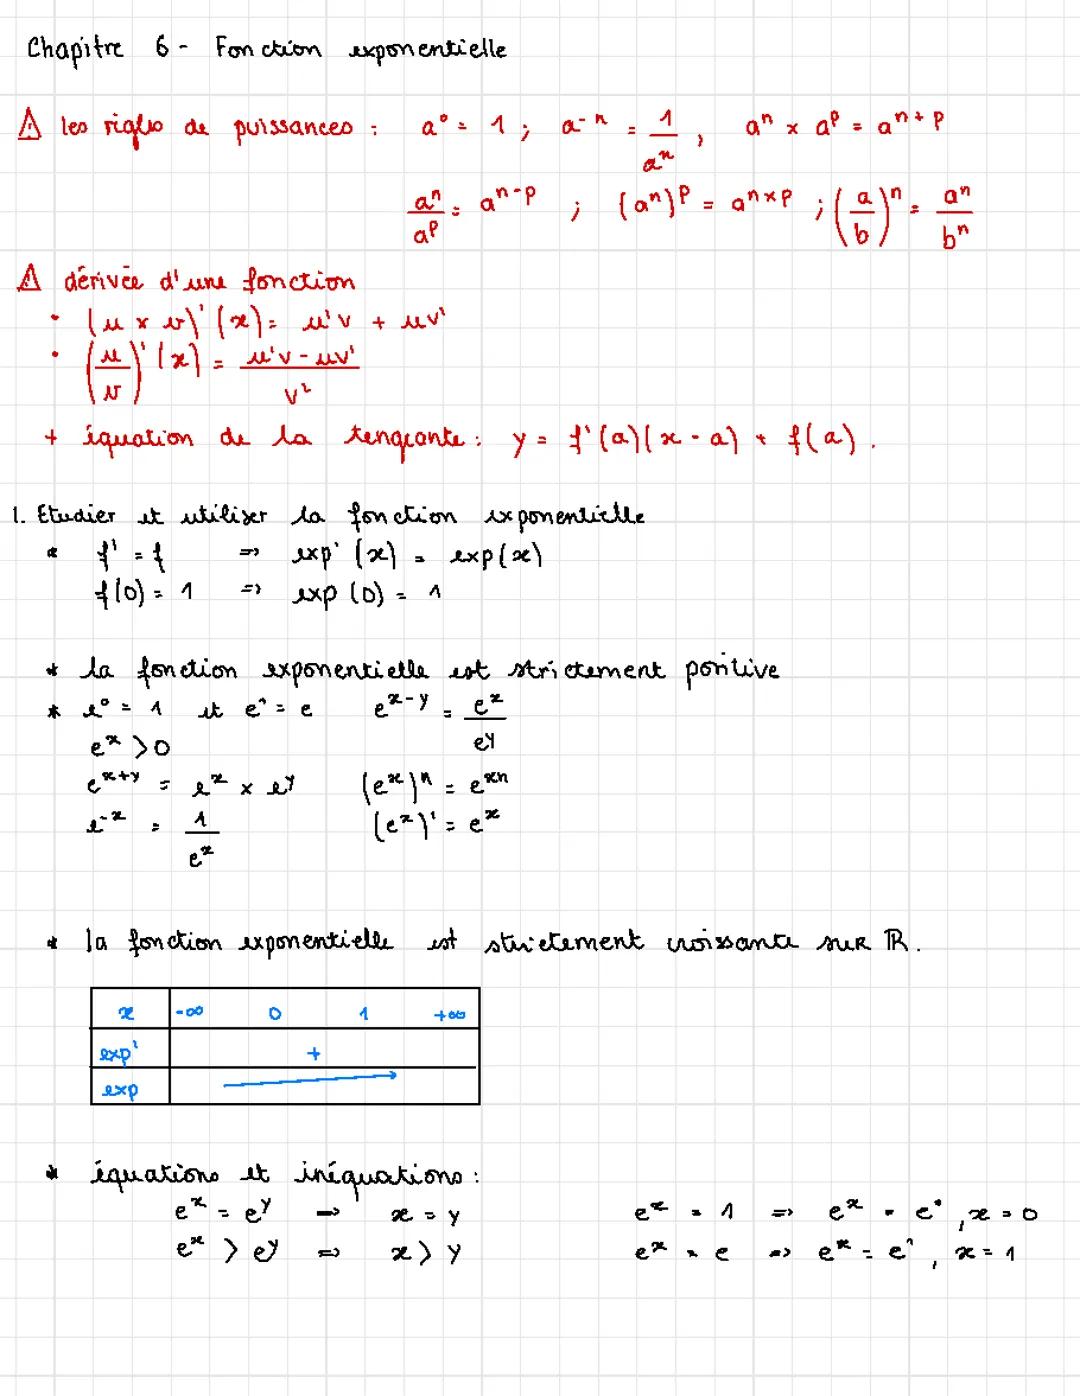 Chapitre 6 - Fonction exponentielle
⚠ les règles de puissances : a⁰ = 1 ; a⁻ⁿ = 1/aⁿ , aⁿ × aᵖ = aⁿ⁺ᵖ
aⁿ/aᵖ = aⁿ⁻ᵖ ; (aⁿ)ᵖ = aⁿˣᵖ ; (a/b)ⁿ = aⁿ/bⁿ
⚠ dérivée d'une fonction
• (u × v)'(x) = u'v + uv'
• (u/v)'(x) = (u'v - uv')/v²
+ équation de la tengeante : y = f'(a)(x - a) + f(a).
1. Etudier et utiliser la fonction exponentielle
* f' = f => exp'(x) = exp(x)
f(0) = 1 => exp(0) = 1
* la fonction exponentielle est strictement positive
* e⁰ = 1 et e¹ = e e^(x-y) = e^x/e^y
e^x > 0
e^(x+y) = e^x × e^y (e^x)^n = e^(xn)
e^(-x) = 1/e^x (e^x)' = e^x
* la fonction exponentielle est strictement croissante sur ℝ.
x -∞ 0 1 +∞
exp' +
exp
* équations et inéquations :
e^x = e^y => x = y e^x = 1 => e^x = e⁰, x = 0
e^x > e^y => x > y e^x = e => e^x = e¹, x = 1